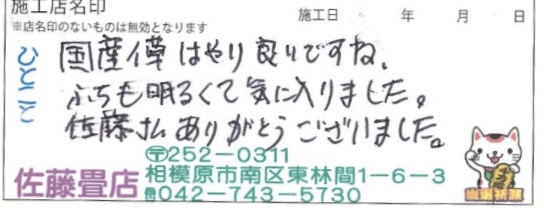 施工店名印
※店名印のないものは無効となります
施工日 年 月 日
ひとこと
国産イ草はやり良いですね、
ふちも明るくて気に入りました。
佐藤さんありがとうございました。
〒252-0311
佐藤畳店
相模原市南区東林間1-6-3
☎042-743-5730
当選祈願